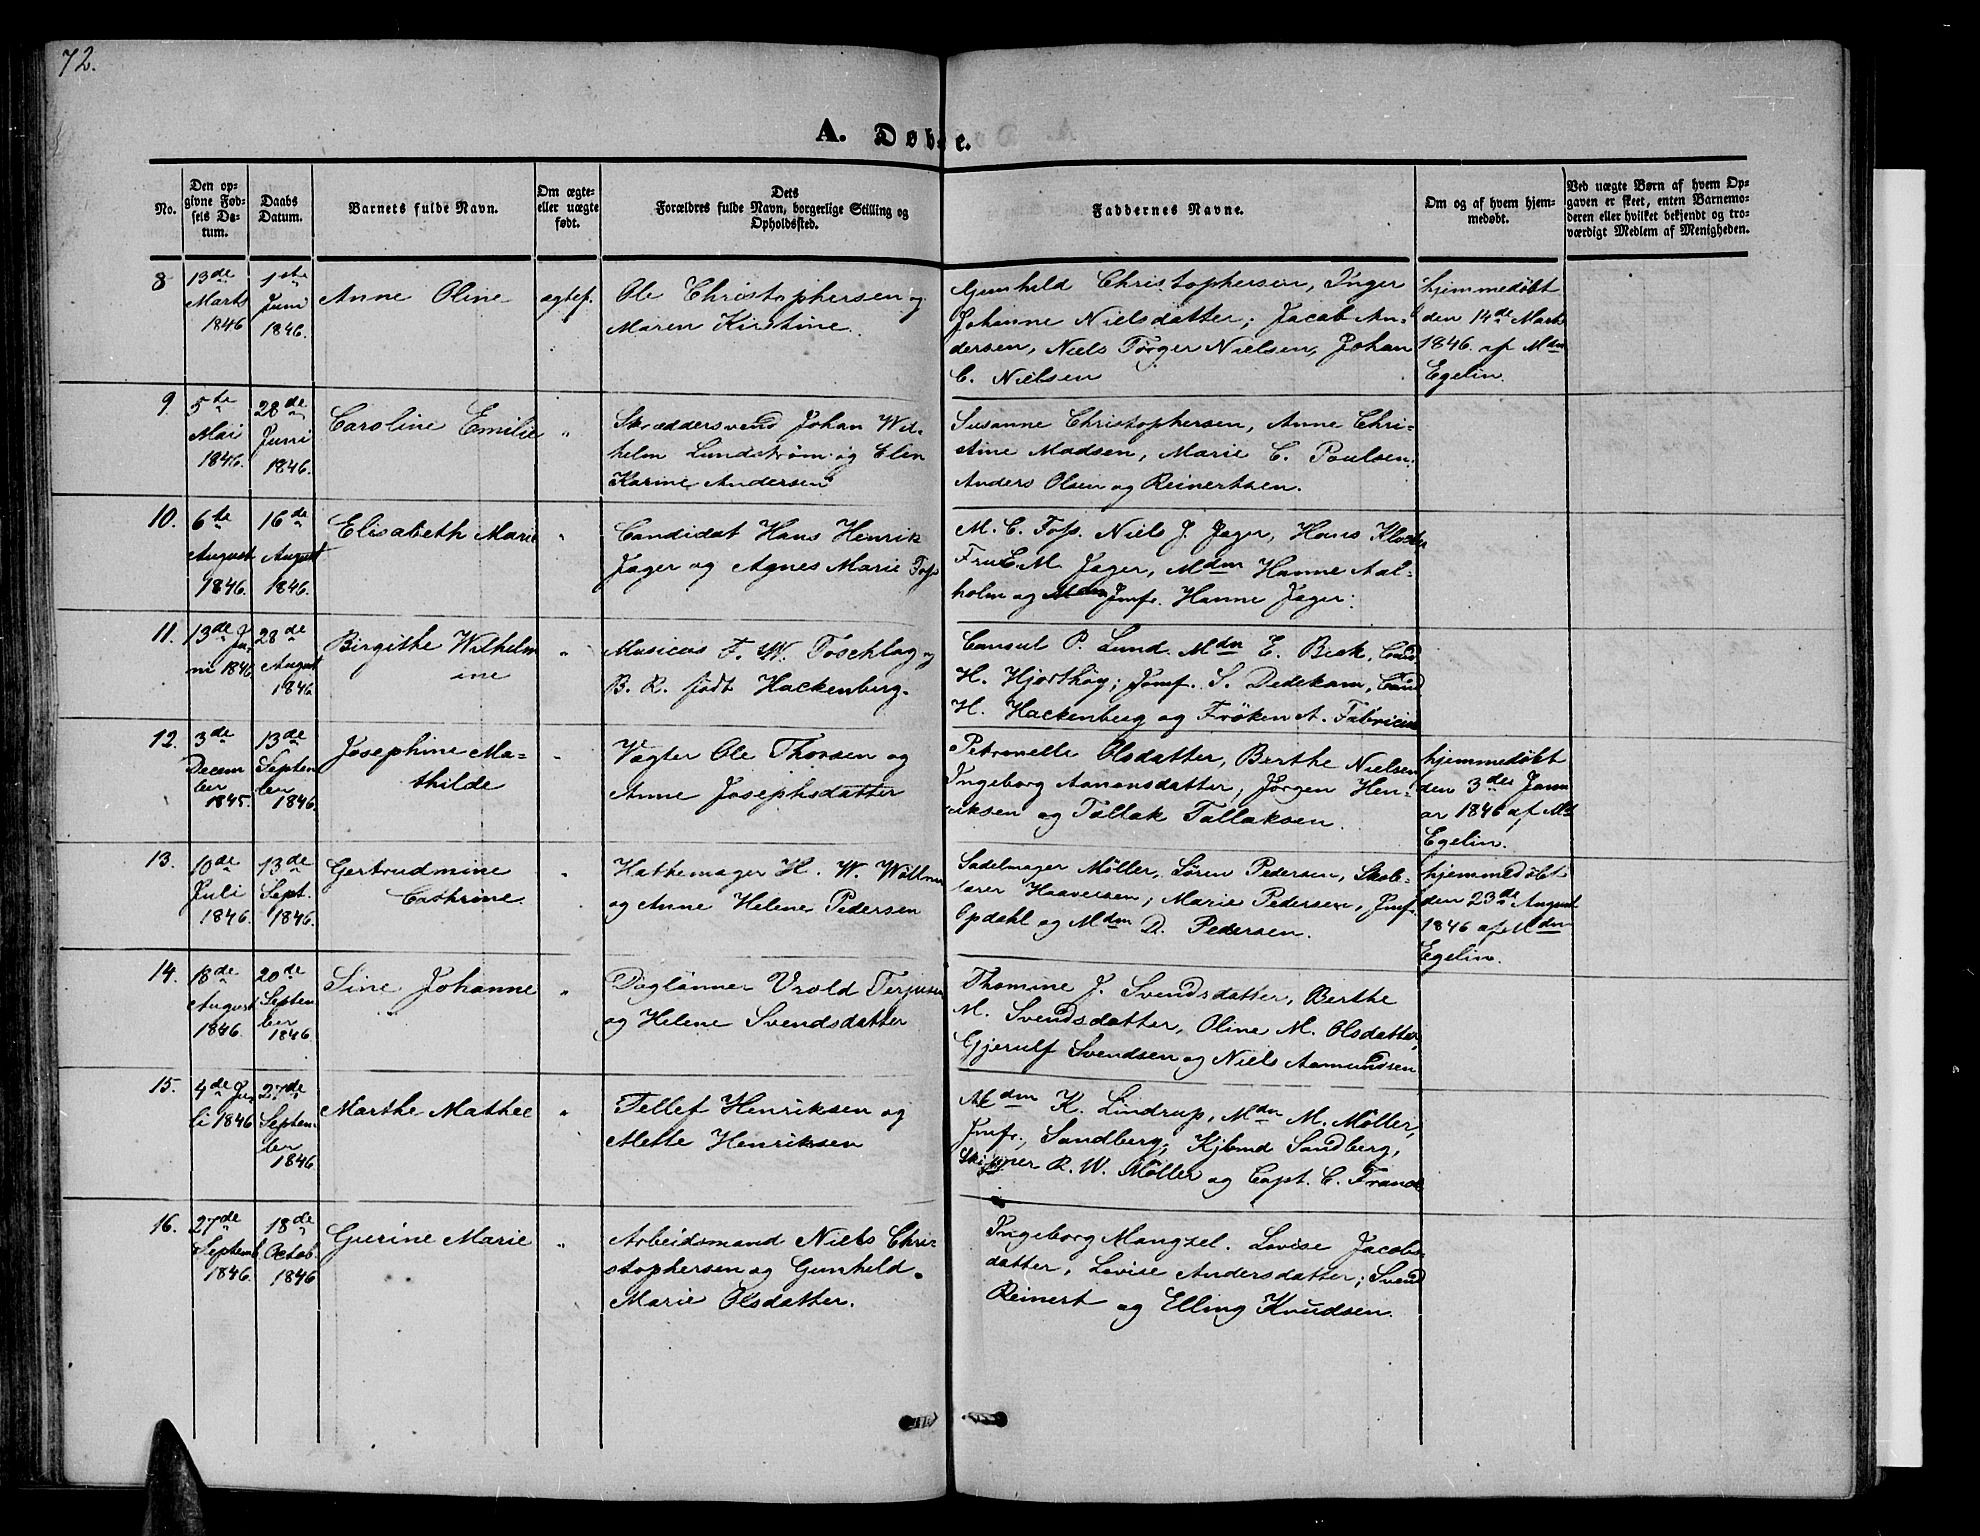 72.
A. Døbte.
No.
Den op-
givne Fød-
sels Da-
tum.
Daabs
Datum.
Barnets fulde Navn.
Om ægte-
eller uægte
født.
Dets
Forældres fulde Navn, borgerlige Stilling og
Opholdssted.
Faddernes Navne.
Om og af hvem hjem-
medøbt.
Ved uægte Børn af hvem Op-
gaven er skeet, enten Barnemo-
deren eller hvilket bekjendt og tro-
værdigt Medlem af Menigheden.
8
13de
Marts
1846
1ste
Juni
1846.
Anne Oline
ægtef.
Ole Christophersen og
Maren Kirstine.
Gunhild Christophersen, Inger
Johanne Nielsdatter, Jacob An-
dersen, Niels Törger Nielsen, Johan
C. Nielsen
hjemmedøbt
den 14de Marts
1846. af Mdm
Egelin.
9.
5te
Mai
1846.
28de
Juni
1846.
Caroline Emilie
"
Skræddersvend Johan Wil-
helm Lundstrøm og Elen
Karine Andersen
Susanne Christophersen, Anne Chri-
stine Madsen, Marie C. Poulsen,
Anders Olsen og Reinertsen.
10.
6te
August
1846.
16de
August
1846.
Elisabeth Marie
"
Candidat Hans Henrik
Jager og Agnes Marie Foss
M. C. Foss. Niels J. Jager, Hans Klocker
Fru E. M. Jager, Mdm Hanne Aal-
holm og Jmfr. Hanne Jager.
11.
13de Ju-
ni 1846
28de
August
1846
Birgithe Wilhelm
ine
"
Musicus F. W. Toschlag og
B. R. født Hackenberg.
Consul P. Lund. Mdm E. Beck, Cand
H. Hjorthöy; Jomf. S. Dedekam, Cand
H. Hackenberg og Frøken A. Fabricius
12.
3de
Decem
ber
1845.
13de
Septem
ber
1846.
Josephine Ma-
thilde
"
Vægter Ole Thorsen og
Anne Josephsdatter
Petronelle Olsdatter, Berthe Nielsen
Ingeborg Aanonsdatter, Jörgen Hen-
riksen og Tallak Tallaksen.
hjemmedøbt
den 3de Janu
ar 1846 af Md
Egelin.
13.
10de
Juli
1846.
13de
Sept.
1846.
Gertrudmine
Cathrine.
"
Hattemager H. W. Wöllner
og Anne Helene Pedersen
Sadelmager Møller, Søren Pedersen, Skole-
lærer Haaversen, Marie Pedersen, Jmf.
Opdahl og Mdm D. Pedersen.
hjemmedøbt
den 23de August
1846 af Mdm
Egelin.
14.
18de
August
1846.
20de
Septem
ber
1846.
Sine Johanne
"
Daglønner Vrold Terjesen
og Helene Svendsdatter
Thomine J. Svendsdatter, Berthe
M. Svendsdatter, Oline M. Olsdatter,
Gjerulf Svendsen og Niels Aamundsen
15.
4de Ju-
li 1846
27de
Septem-
ber
1846.
Marthe Mathee
"
Tellef Henriksen og
Mette Henriksen
Mdm K. Lindrup, Mdm M. Møller,
Jmfr. Sandberg, Kjbmd Sandberg,
Skipper R. W. Møller og Capt. C. Franck
16.
27de
Septemb.
1846.
18de
Octob.
1846
Gurine Marie
"
Arbeidsmand Niels Chri-
stophersen og Gunhild
Marie Olsdatter.
Ingeborg Mangsel. Lovise Jacobs-
datter, Lovise Andersdatter, Svend
Reinert og Elling Knudsen.